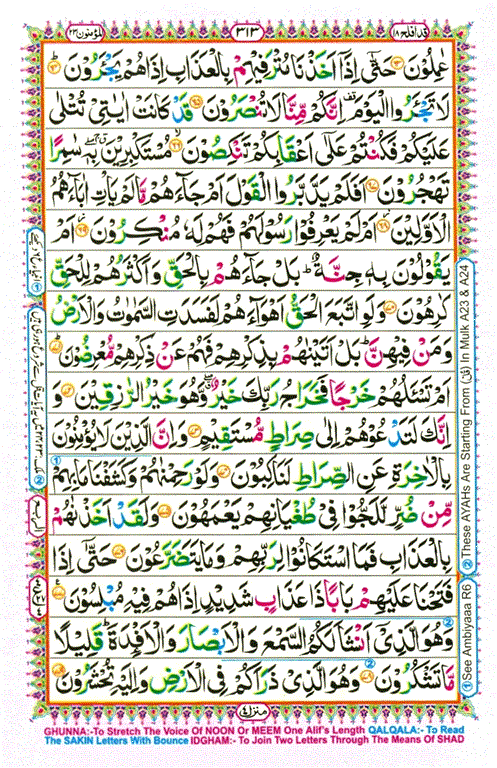 المؤمنون ٢٣
٣١٣
قد افلح ١٨
عٰمِلُوْنَ ﴿۶۳﴾ حَتّٰۤی اِذَاۤ اَخَذْنَا مُتْرَفِیْهِمْ بِالْعَذَابِ اِذَا هُمْ یَجْـَٔرُوْنَ ﴿۶۴﴾
لَا تَجْـَٔرُوا الْیَوْمَ ۫ اِنَّكُمْ مِّنَّا لَا تُنْصَرُوْنَ ﴿۶۵﴾ قَدْ كَانَتْ اٰیٰتِیْ تُتْلٰی
عَلَیْكُمْ فَكُنْتُمْ عَلٰۤی اَعْقَابِكُمْ تَنْكِصُوْنَ ﴿۶۶﴾ مُسْتَكْبِرِیْنَ ۖۗ بِهٖ سٰمِرًا
تَهْجُرُوْنَ ﴿۶۷﴾ اَفَلَمْ یَدَّبَّرُوا الْقَوْلَ اَمْ جَآءَهُمْ مَّا لَمْ یَاْتِ اٰبَآءَهُمُ
الْاَوَّلِیْنَ ﴿۶۸﴾ اَمْ لَمْ یَعْرِفُوْا رَسُوْلَهُمْ فَهُمْ لَهٗ مُنْكِرُوْنَ ﴿۶۹﴾ اَمْ
یَقُوْلُوْنَ بِهٖ جِنَّةٌ ؕ بَلْ جَآءَهُمْ بِالْحَقِّ وَ اَكْثَرُهُمْ لِلْحَقِّ
كٰرِهُوْنَ ﴿۷۰﴾ وَ لَوِ اتَّبَعَ الْحَقُّ اَهْوَآءَهُمْ لَفَسَدَتِ السَّمٰوٰتُ وَ الْاَرْضُ
وَ مَنْ فِیْهِنَّ ؕ بَلْ اَتَیْنٰهُمْ بِذِكْرِهِمْ فَهُمْ عَنْ ذِكْرِهِمْ مُّعْرِضُوْنَ ﴿۷۱﴾
اَمْ تَسْـَٔلُهُمْ خَرْجًا فَخَرَاجُ رَبِّكَ خَیْرٌ ۖۗ وَّ هُوَ خَیْرُ الرّٰزِقِیْنَ ﴿۷۲﴾ وَ
اِنَّكَ لَتَدْعُوْهُمْ اِلٰی صِرَاطٍ مُّسْتَقِیْمٍ ﴿۷۳﴾ وَ اِنَّ الَّذِیْنَ لَا یُؤْمِنُوْنَ
بِالْاٰخِرَةِ عَنِ الصِّرَاطِ لَنٰكِبُوْنَ ﴿۷۴﴾ وَ لَوْ رَحِمْنٰهُمْ وَ كَشَفْنَا مَا بِهِمْ
مِّنْ ضُرٍّ لَّلَجُّوْا فِیْ طُغْیَانِهِمْ یَعْمَهُوْنَ ﴿۷۵﴾ وَ لَقَدْ اَخَذْنٰهُمْ
بِالْعَذَابِ فَمَا اسْتَكَانُوْا لِرَبِّهِمْ وَ مَا یَتَضَرَّعُوْنَ ﴿۷۶﴾ حَتّٰۤی اِذَا
فَتَحْنَا عَلَیْهِمْ بَابًا ذَا عَذَابٍ شَدِیْدٍ اِذَا هُمْ فِیْهِ مُبْلِسُوْنَ ﴿۷۷﴾
وَ هُوَ الَّذِیْۤ اَنْشَاَ لَكُمُ السَّمْعَ وَ الْاَبْصَارَ وَ الْاَفْـِٕدَةَ ؕ قَلِیْلًا
مَّا تَشْكُرُوْنَ ﴿۷۸﴾ وَ هُوَ الَّذِیْ ذَرَاَكُمْ فِی الْاَرْضِ وَ اِلَیْهِ تُحْشَرُوْنَ ﴿۷۹﴾
منزل ٤
② These AYAHs Are Starting From (قل) In Mulk A23 & A24
① See Ambiyaaa R6
GHUNNA:-To Stretch The Voice Of NOON Or MEEM One Alif's Length QALQALA:- To Read
The SAKIN Letters With Bounce IDGHAM:- To Join Two Letters Through The Means Of SHAD